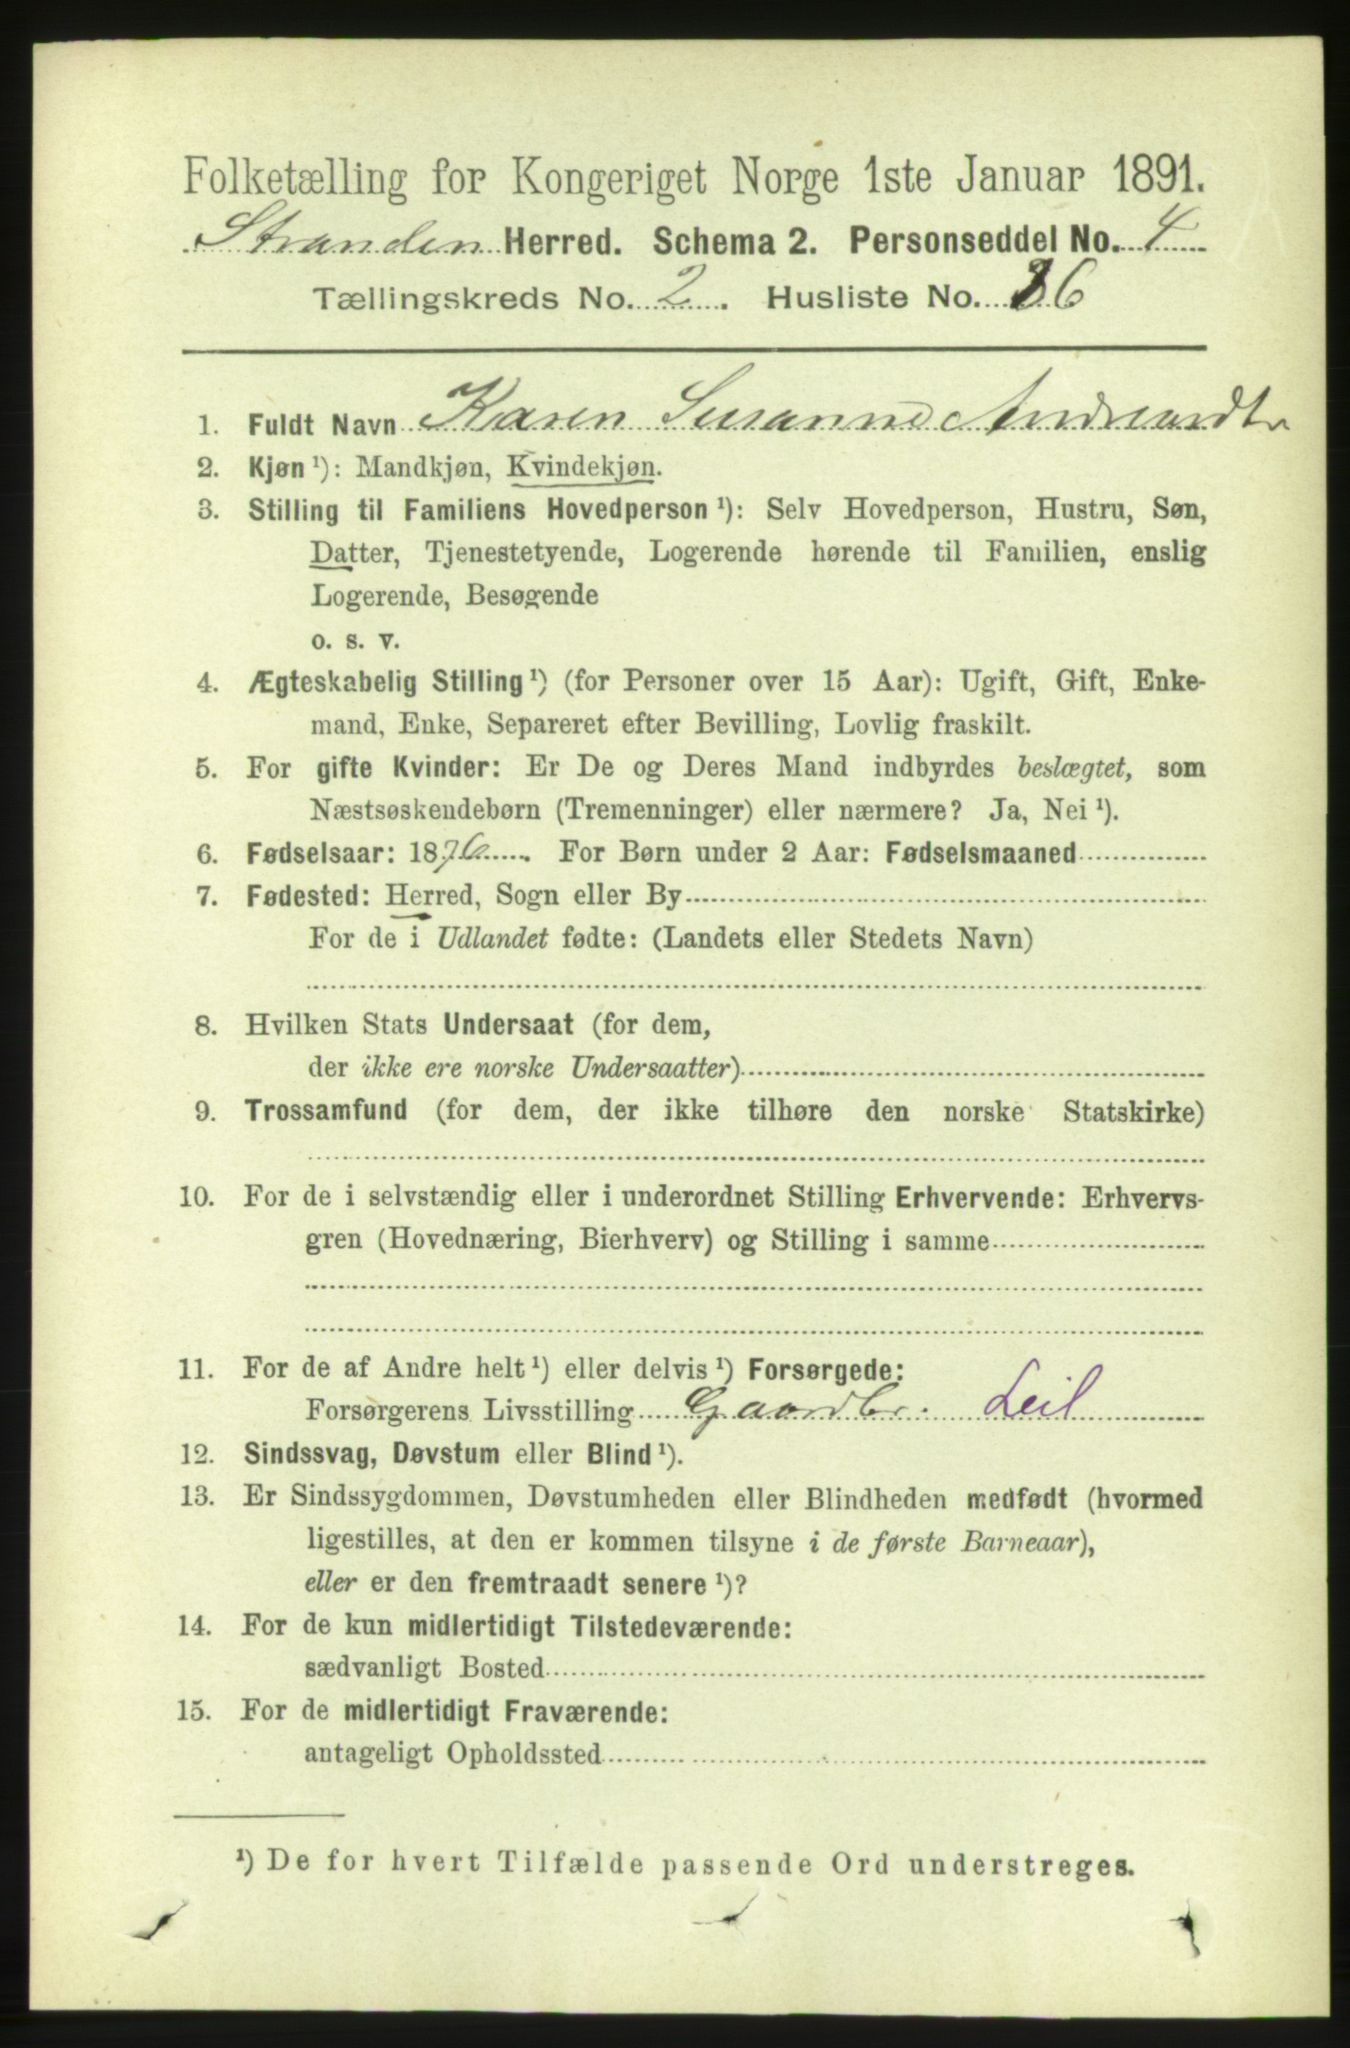 Folketælling for Kongeriget Norge 1ste Januar 1891.
Stranden Herred. Schema 2. Personseddel No. 4
Tællingskreds No. 2. Husliste No. 26
1. Fuldt Navn Karen Susanne
2. Kjøn ¹): Mandkjøn, Kvindekjøn.
3. Stilling til Familiens Hovedperson ¹): Selv Hovedperson, Hustru, Søn,
Datter, Tjenestetyende, Logerende hørende til Familien, enslig
Logerende, Besøgende
o. s. v.
4. Ægteskabelig Stilling ¹) (for Personer over 15 Aar): Ugift, Gift, Enke-
mand, Enke, Separeret efter Bevilling, Lovlig fraskilt.
5. For gifte Kvinder: Er De og Deres Mand indbyrdes beslægtet, som
Næstsøskendebørn (Tremenninger) eller nærmere? Ja, Nei ¹).
6. Fødselsaar: 1876. For Børn under 2 Aar: Fødselsmaaned
7. Fødested: Herred, Sogn eller By
For de i Udlandet fødte: (Landets eller Stedets Navn)
8. Hvilken Stats Undersaat (for dem,
der ikke ere norske Undersaatter)
9. Trossamfund (for dem, der ikke tilhøre den norske Statskirke)
10. For de i selvstændig eller i underordnet Stilling Erhvervende: Erhvervs-
gren (Hovednæring, Bierhverv) og Stilling i samme
11. For de af Andre helt ¹) eller delvis ¹) Forsørgede:
Forsørgerens Livsstilling Gaardbr. Leil
12. Sindssvag, Døvstum eller Blind ¹).
13. Er Sindssygdommen, Døvstumheden eller Blindheden medfødt (hvormed
ligestilles, at den er kommen tilsyne i de første Barneaar),
eller er den fremtraadt senere ¹)?
14. For de kun midlertidigt Tilstedeværende:
sædvanligt Bosted
15. For de midlertidigt Fraværende:
antageligt Opholdssted
¹) De for hvert Tilfælde passende Ord understreges.